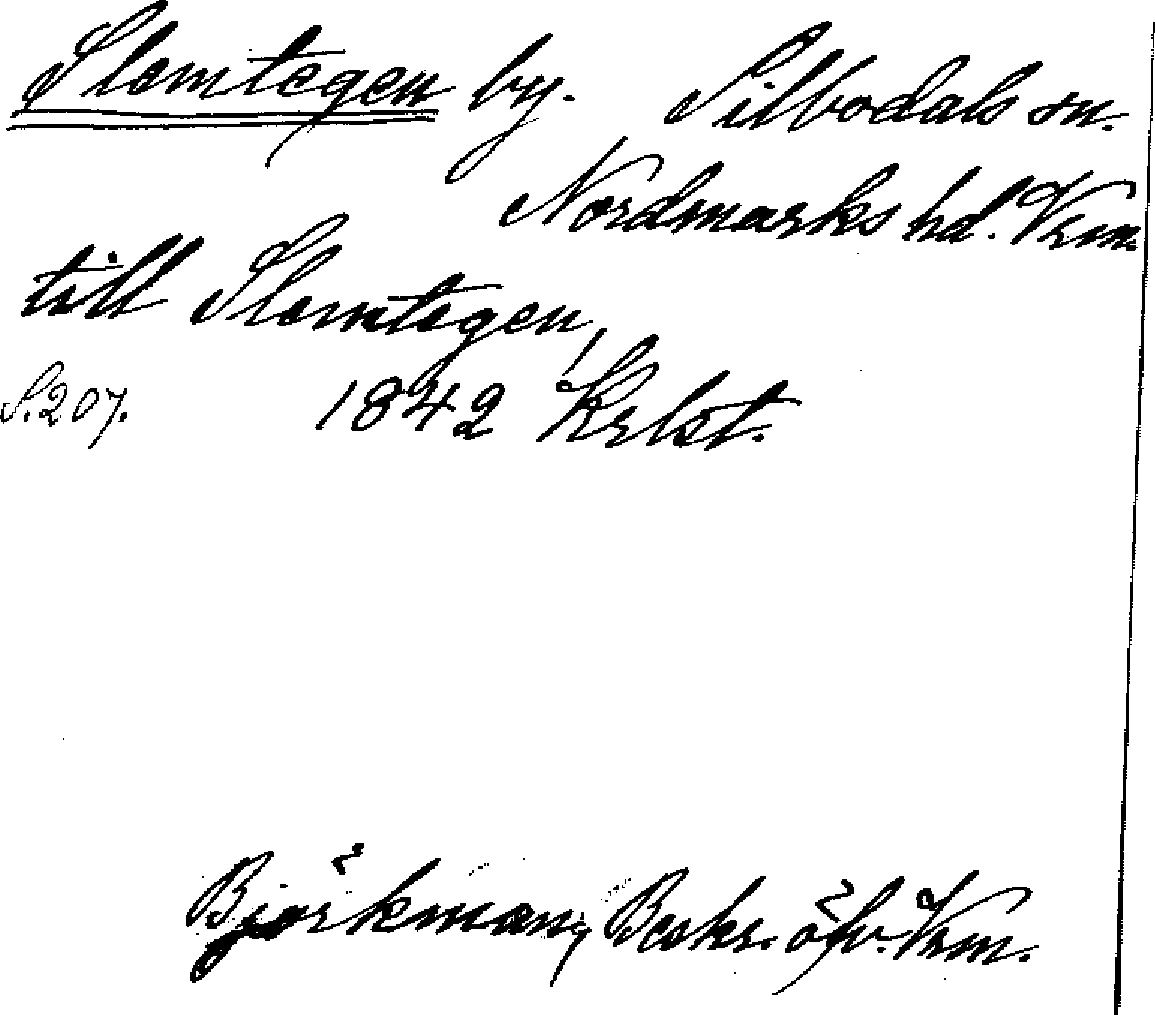 Slomtegen by. Silbodals sn.
Nordmarks hd. Vrm.
till Slomtegen,
S. 207. 1842 Krlst.
Björkman, Beskr. öfv. Vrm.